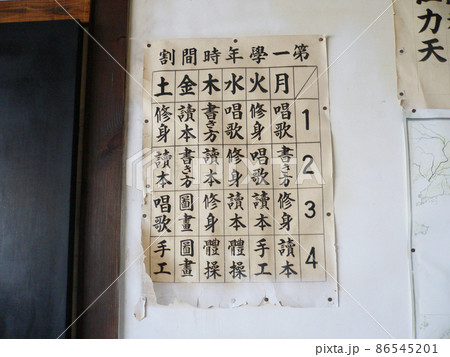 第一學年時間割
月 火 水 木 金 土
1 唱歌 修身 唱歌 書き方 讀本 修身
2 書き方 唱歌 修身 讀本 書き方 讀本
3 修身 讀本 讀本 修身 圖畫 唱歌
4 讀本 手工 體操 體操 圖畫 手工
力天
pixta.jp - 86545201